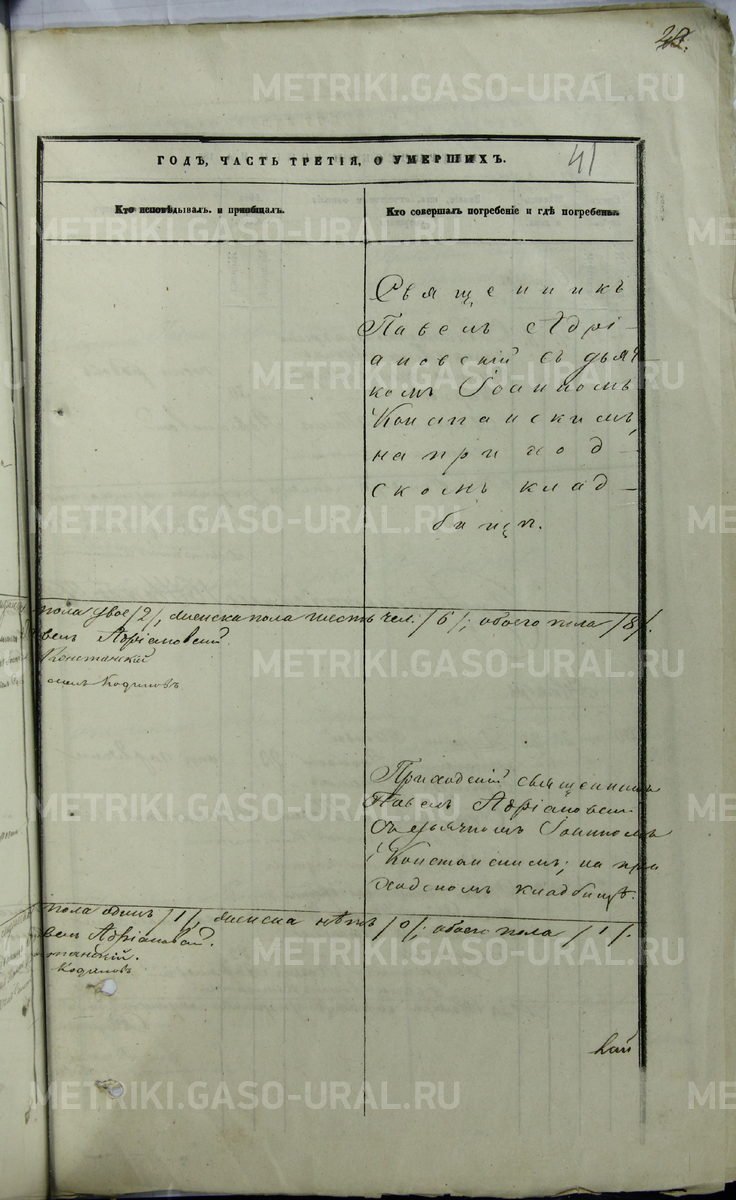 41
ГОДЪ, ЧАСТЬ ТРЕТІЯ, О УМЕРШИХЪ.
Кто исповѣдывалъ и пріобщалъ.
Кто совершалъ погребеніе и гдѣ погребены.
Священникъ
Павелъ Адрі-
ановскій съ дьяч-
комъ Іоанномъ
Констанскимъ,
на приход-
скомъ клад-
бищѣ.
пола двое /2/, женска пола шесть чел. /6/; обоего пола /8/.
велъ Адріановскій.
Констанскій
Кодиловъ
Приходскій священникъ
Павелъ Адріановскій
съ дьячкомъ Іоанномъ
Констанскимъ; на при
ходскомъ кладбищѣ.
пола одинъ /1/, женска нѣтъ /0/; обоего пола /1/.
велъ Адріановскій.
танскій.
Кодиловъ
METRIKI.GASO-URAL.RU